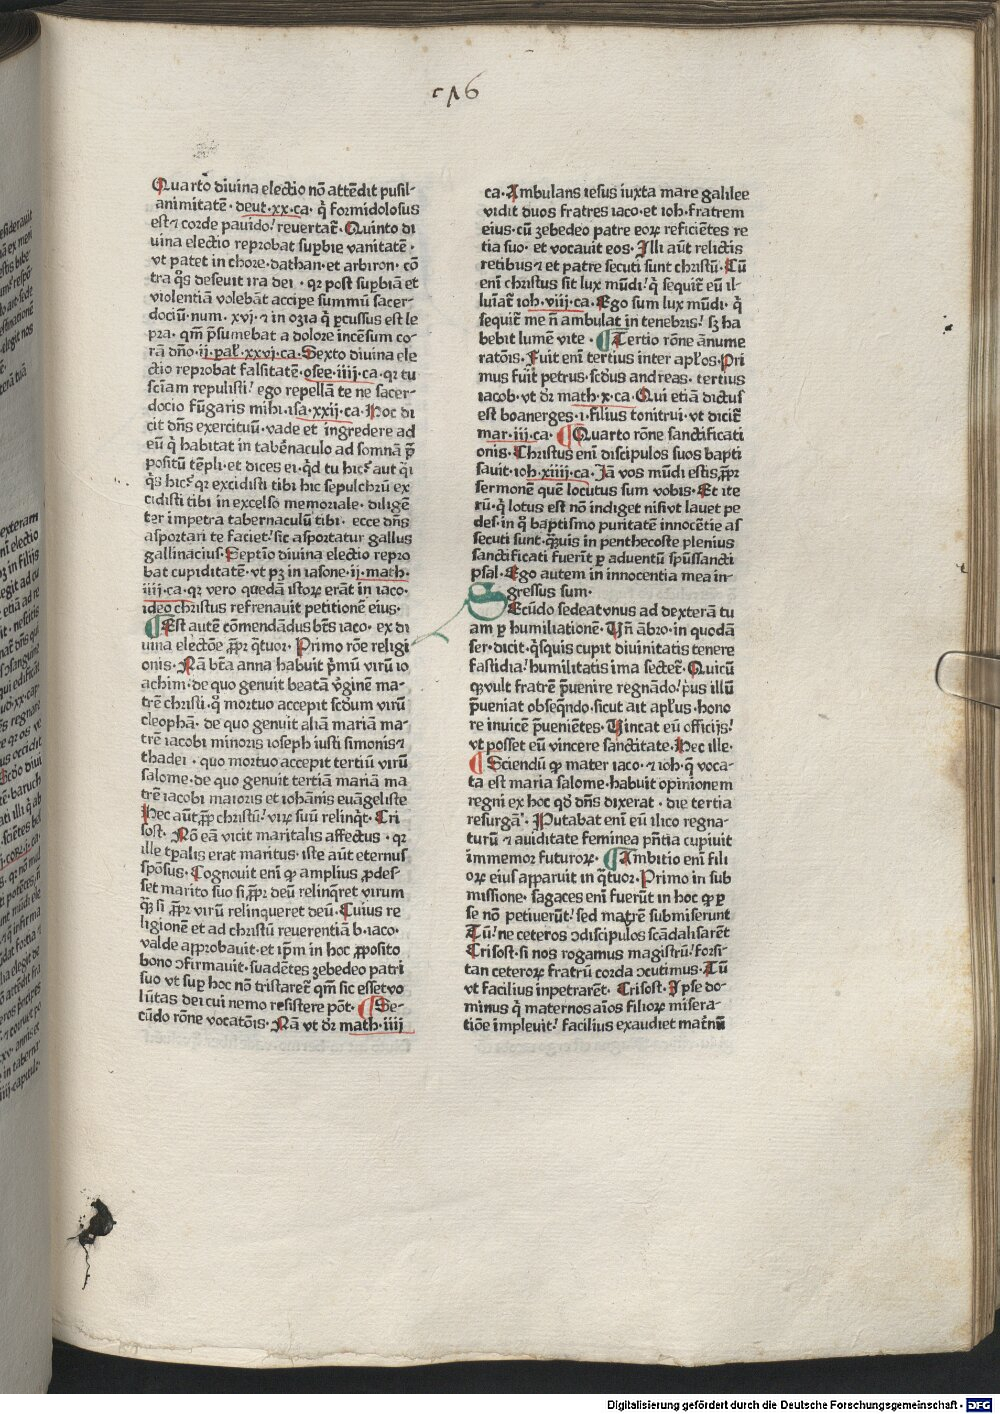 c16
Quarto diuina electio nō attēdit pusil-
animitatē · deut·xx·ca· q̄ formidolosus
est ⁊ corde pauido! reuertat̄ · Quinto di
uina electio reprobat supb̄ie vanitatē ·
vt patet in chore·dathan·et abiron· cō
tra q̄s deseuit ira dei · qr post supb̄iā et
violentiā volebāt accipe summū sacer-
dociū·num· xvj· ⁊ in ozia q̄ pcussus est le
pra· qm̄ psumebat a dolore incēsum co-
rā dn̄o·ij·pal̄·xxvj·ca·Sexto diuina ele
ctio reprobat falsitatē·osee·iiij·ca·qr tu
sciam repulisti! ego repellā te ne sacer-
docio fūgaris mihi·isa·xxij·ca·Hoc di
cit dn̄s exercituū·vade et ingredere ad
eū q̄ habitat in tabēnaculo ad somnā p̄
positū tēpli·et dices ei·q̄d tu hic? aut q̄i
q̄s hic? qr excidisti tibi hic sepulchrū ex
cidisti tibi in excelso memoriale·diligē
ter impetra tabernaculū tibi· ecce dn̄s
asportari te faciet! sic asportatur gallus
gallinacius·Septīo diuina electio repro
bat cupiditatē·vt pz in iasone·ij·math·
iiij·ca·qr vero quedā istoꝝ erāt in iaco·
ideo christus refrenauit petitionē eius·
¶Est autē cōmendādus bt̄s iaco· ex di
uina electōe ꝓpr q̄tuor· Primo rōe religi
onis·Nā bt̄a anna habuit p̄mū virū io
achim·de quo genuit beatā v̄ginē ma-
trē christi·q̄ mortuo accepit scd̄um virū
cleophā· de quo genuit aliā mariā ma-
trē iacobi minoris ioseph iusti simonis ⁊
thadei · quo mortuo accepit tertiū virū
salome·de quo genuit tertiā mariā ma
trē iacobi maioris et iohānis euāgeliste
Hec aūt ꝓp christū! virꝫ suū relinqt̄· Cri
sost· Nō eā vicit maritalis affectus · qr
ille tp̄alis erat maritus·iste aūt eternus
spōsus·Cognouit enī ꝙ amplius ꝓdes-
set marito suo si ꝓpr deū relinqret virum
q̄ꝫ si ꝓpr virū relinqueret deū·Cuius re
ligionē et ad christū reuerentiā b·iaco·
valde approbauit·et ip̄m in hoc ꝓposito
bono ɔfirmauit·suadētes zebedeo patri
suo vt sup hoc nō tristaret̄ qm̄ sic esset vo
lūtas dei cui nemo resistere pōt· ¶Se-
cūdo rōne vocatōis·Nā vt dr̄ math·iiij
ca·Ambulans iesus iuxta mare galilee
vidit duos fratres iaco·et ioh·fratrem
eius·cū zebedeo patre eoꝝ reficiētes re
tia suo· et vocauit eos·Illi aūt relictis
retibus ⁊ et patre secuti sunt christū·Cū
enī christus sit lux mūdi! q̄ sequit̄ eū il-
luīat̄ ioh·viij·ca·Ego sum lux mūdi· q̄
sequit̄ me n̄ ambulat in tenebris! sꝫ ha
bebit lumē vite · ¶Tertio rōne ānume
ratōis·Fuit enī tertius inter apl̄os·Pri
mus fuit petrus·scd̄us andreas· tertius
iacob·vt dr̄ math·x·ca·Qui etiā dictus
est boanerges·i·filius tonitrui·vt dicit̄
mar·iii·ca· ¶Quarto rōne sanctificati
onis·Christus enī discipulos suos bapti
sauit·ioh·xiiij·ca·Iā vos mūdi estis ꝓpr
sermonē quē locutus sum vobis·Et ite
rū·q̄ lotus est nō indiget nisi vt lauet pe
des·in q̄ baptismo puritatē innocētie as
secuti sunt·q̄uis in penthecoste plenius
sanctificati fuerūt p aduentū sp̄ussancti
psal·Ego autem in innocentia mea in-
gressus sum·
SEcūdo sedeat vnus ad dexterā tu
am p humiliationē·Vn̄ ābro·in quodā
ser·dicit·q̄squis cupit diuinitatis tenere
fastidia! humilitatis ima sectet̄·Quicū
qꝫ vult fratrē p̄uenire regnādo! p̄us illū
p̄ueniat obseqndo·sicut ait apl̄us·hono
re inuicē p̄ueniētes·Vincat eū officijs!
vt posset eū vincere sanctitate·Hec ille·
¶Sciendū ꝙ mater iaco· ⁊ ioh·q̄ voca-
ta est maria salome·habuit opinionem
regni ex hoc qd̄ dn̄s dixerat · die tertia
resurgā· Putabat enī eū ilico regna-
turū ⁊ auiditate feminea pn̄tia cupiuit
immemor futuroꝝ· ¶Ambitio enī fili
oꝝ eius apparuit in q̄tuor·Primo in sub
missione· sagaces enī fuerūt in hoc ꝙ p
se nō petiuerūt! sed matrē submiserunt
Tū! ne ceteros ɔdiscipulos scādalisarēt
Crisost·si nos rogamus magistrū! forsi-
tan ceteroꝝ fratrū corda ɔcutimus·Tū
vt facilius inpetrarēt· Crisost·Ipse do-
minus q̄ maternos aīos filioꝝ misera-
tiōe impleuit! facilius exaudiet mat̄nū
Digitalisierung gefördert durch die Deutsche Forschungsgemeinschaft · DFG